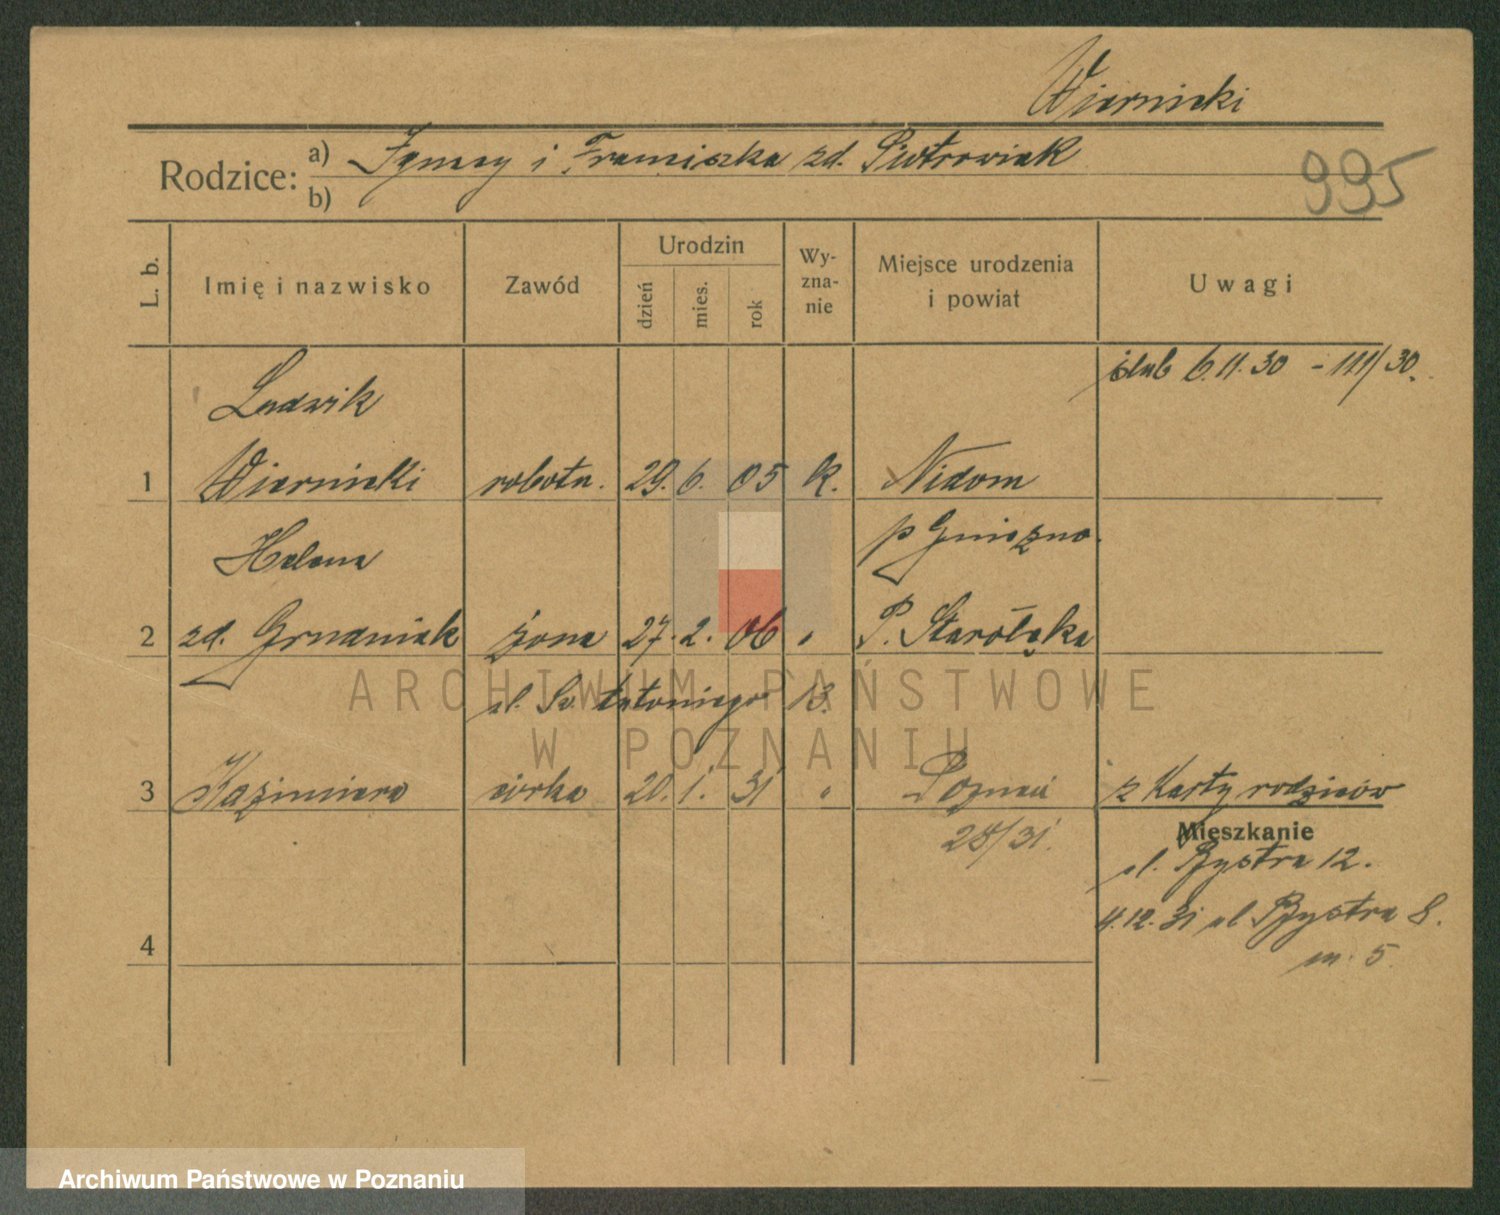 Wiernicki
Rodzice: a) Ignacy i Franciszka zd. Piotrowiak
b)
995
L. b.
Imię i nazwisko
Zawód
Urodzin
dzień
mies.
rok
Wy-
zna-
nie
Miejsce urodzenia
i powiat
Uwagi
ślub 6.11.30 - 111/30.
Ludwik
1 Wiernicki robotn. 29. 6. 05 K. Nidom
p Gniezno.
Helena
2 zd. Grudniak żona 27. 2. 06 " P. Starołęka
ul. Św. Antoniego 13.
3 Kazimiera córka 20. 1. 31 " Poznań z Karty rodziców
28/31.
Mieszkanie
ul. Bystra 12.
4.12.31 ul Bystra 8.
m. 5
4
ARCHIWUM PAŃSTWOWE
W POZNANIU
Archiwum Państwowe w Poznaniu